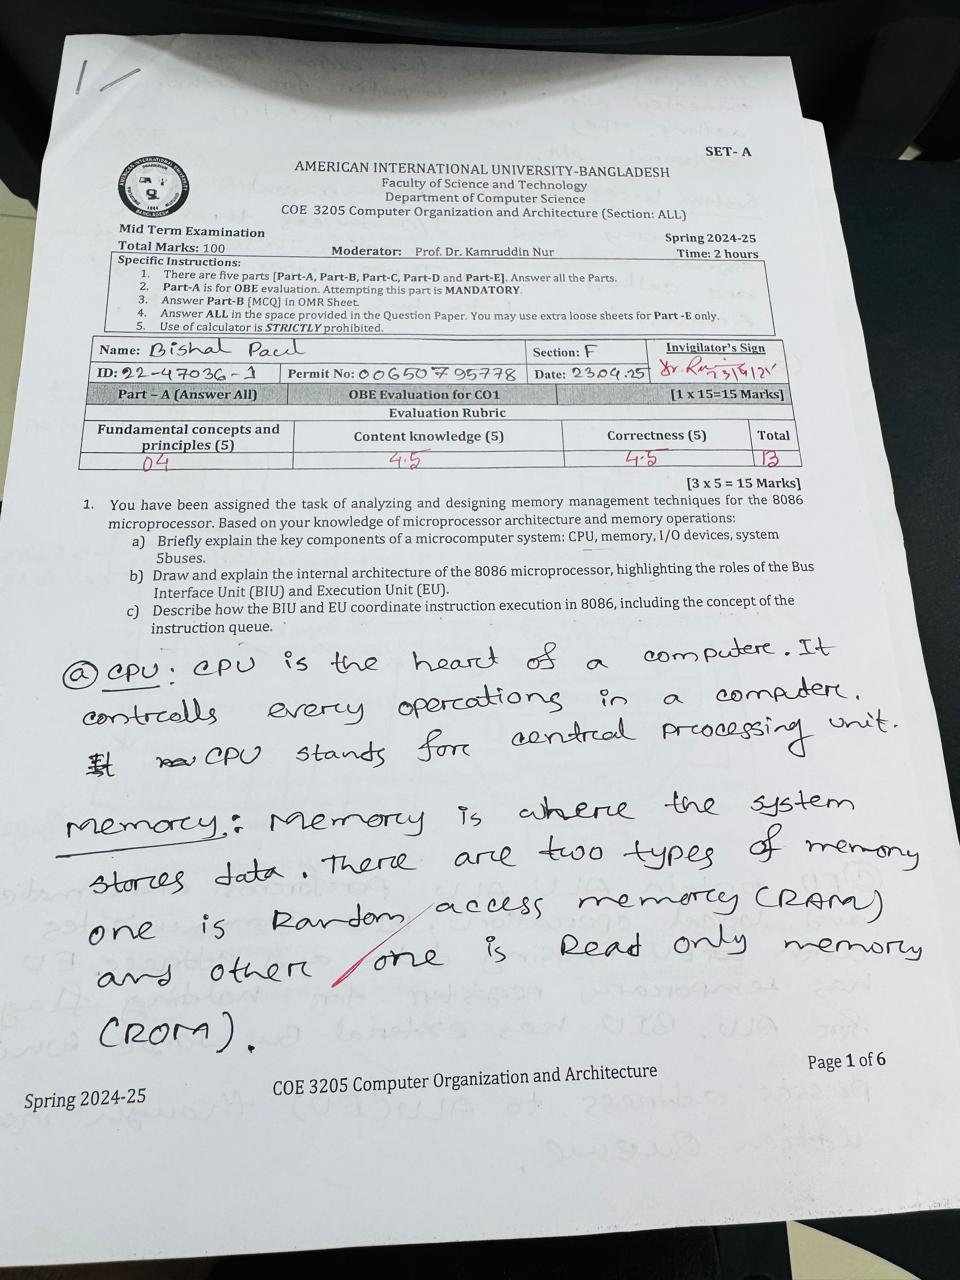 SET- A
AMERICAN INTERNATIONAL UNIVERSITY-BANGLADESH
Faculty of Science and Technology
Department of Computer Science
COE 3205 Computer Organization and Architecture (Section: ALL)
Mid Term Examination
Spring 2024-25
Total Marks: 100 Moderator: Prof. Dr. Kamruddin Nur Time: 2 hours
Specific Instructions:
1. There are five parts [Part-A, Part-B, Part-C, Part-D and Part-E]. Answer all the Parts.
2. Part-A is for OBE evaluation. Attempting this part is MANDATORY.
3. Answer Part-B [MCQ] in OMR Sheet.
4. Answer ALL in the space provided in the Question Paper. You may use extra loose sheets for Part -E only.
5. Use of calculator is STRICTLY prohibited.
Name: Bishal Paul Section: F Invigilator's Sign
ID: 22-47036-1 Permit No: 00650795778 Date: 23.04.25
Part – A (Answer All) OBE Evaluation for CO1 [1 x 15=15 Marks]
Evaluation Rubric
Fundamental concepts and principles (5) Content knowledge (5) Correctness (5) Total
04 4.5 4.5 13
[3 x 5 = 15 Marks]
1. You have been assigned the task of analyzing and designing memory management techniques for the 8086
microprocessor. Based on your knowledge of microprocessor architecture and memory operations:
a) Briefly explain the key components of a microcomputer system: CPU, memory, I/O devices, system
5buses.
b) Draw and explain the internal architecture of the 8086 microprocessor, highlighting the roles of the Bus
Interface Unit (BIU) and Execution Unit (EU).
c) Describe how the BIU and EU coordinate instruction execution in 8086, including the concept of the
instruction queue.
(a) CPU: CPU is the heart of a computere. It
controlls every operations in a computer.
CPU stands for central processing unit.
Memory: Memory is where the system
stores data. There are two types of memory
one is Random access memory (RAM)
and other one is Read only memory
(ROM).
Spring 2024-25 COE 3205 Computer Organization and Architecture Page 1 of 6